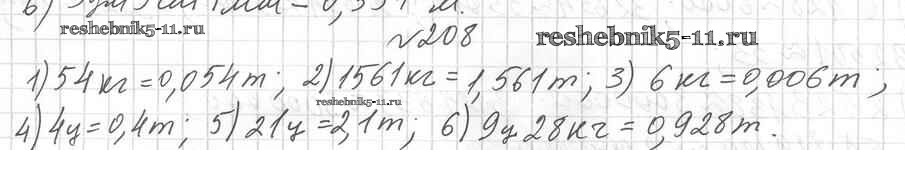 reshebnik5-11.ru
№208
reshebnik5-11.ru
1) 54 кг = 0,054 т; 2) 1561 кг = 1,561 т; 3) 6 кг = 0,006 т;
reshebnik5-11.ru
4) 4 ц = 0,4 т; 5) 21 ц = 2,1 т; 6) 9 ц 28 кг = 0,928 т.